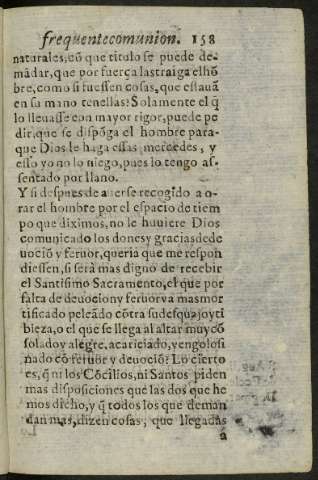 frequentecomunion. 158
naturales, cõ que titulo se puede de-
mãdar, que por fuerça lastraiga elhõ
bre, como si fuessen cosas, que estauã
en su mano tenellas? Solamente el q̃
lo lleuasse con mayor rigor, puede pe
dir, que se dispõga el hombre para-
que Dios le haga essas mercedes, y
esso yo no lo niego, pues lo tengo as-
sentado por llano.
Y si despues de auerse recogido a o-
rar el hombre por el espacio de tiem
po que diximos, no le huuiere Dios
comunicado los dones y gracias dede
uociõ y feruor, queria que me respon
diessen, si serà mas digno de recebir
el Santisimo Sacramento, el que por
falta de deuocion y feruor va mas mor
tificado peleãdo cõtra su desquajo y ti
bieza, o el que se llega al altar muy cõ
solado y alegre, acariciado, y engolosi
nado cõ feruor y deuociõ? Lo cierto
es, q̃ ni los Cõcilios, ni Santos piden
mas disposiciones que las dos que he
mos dicho, y q̃ todos los que deman
dan mas, dizen cosas, que llegadas
a